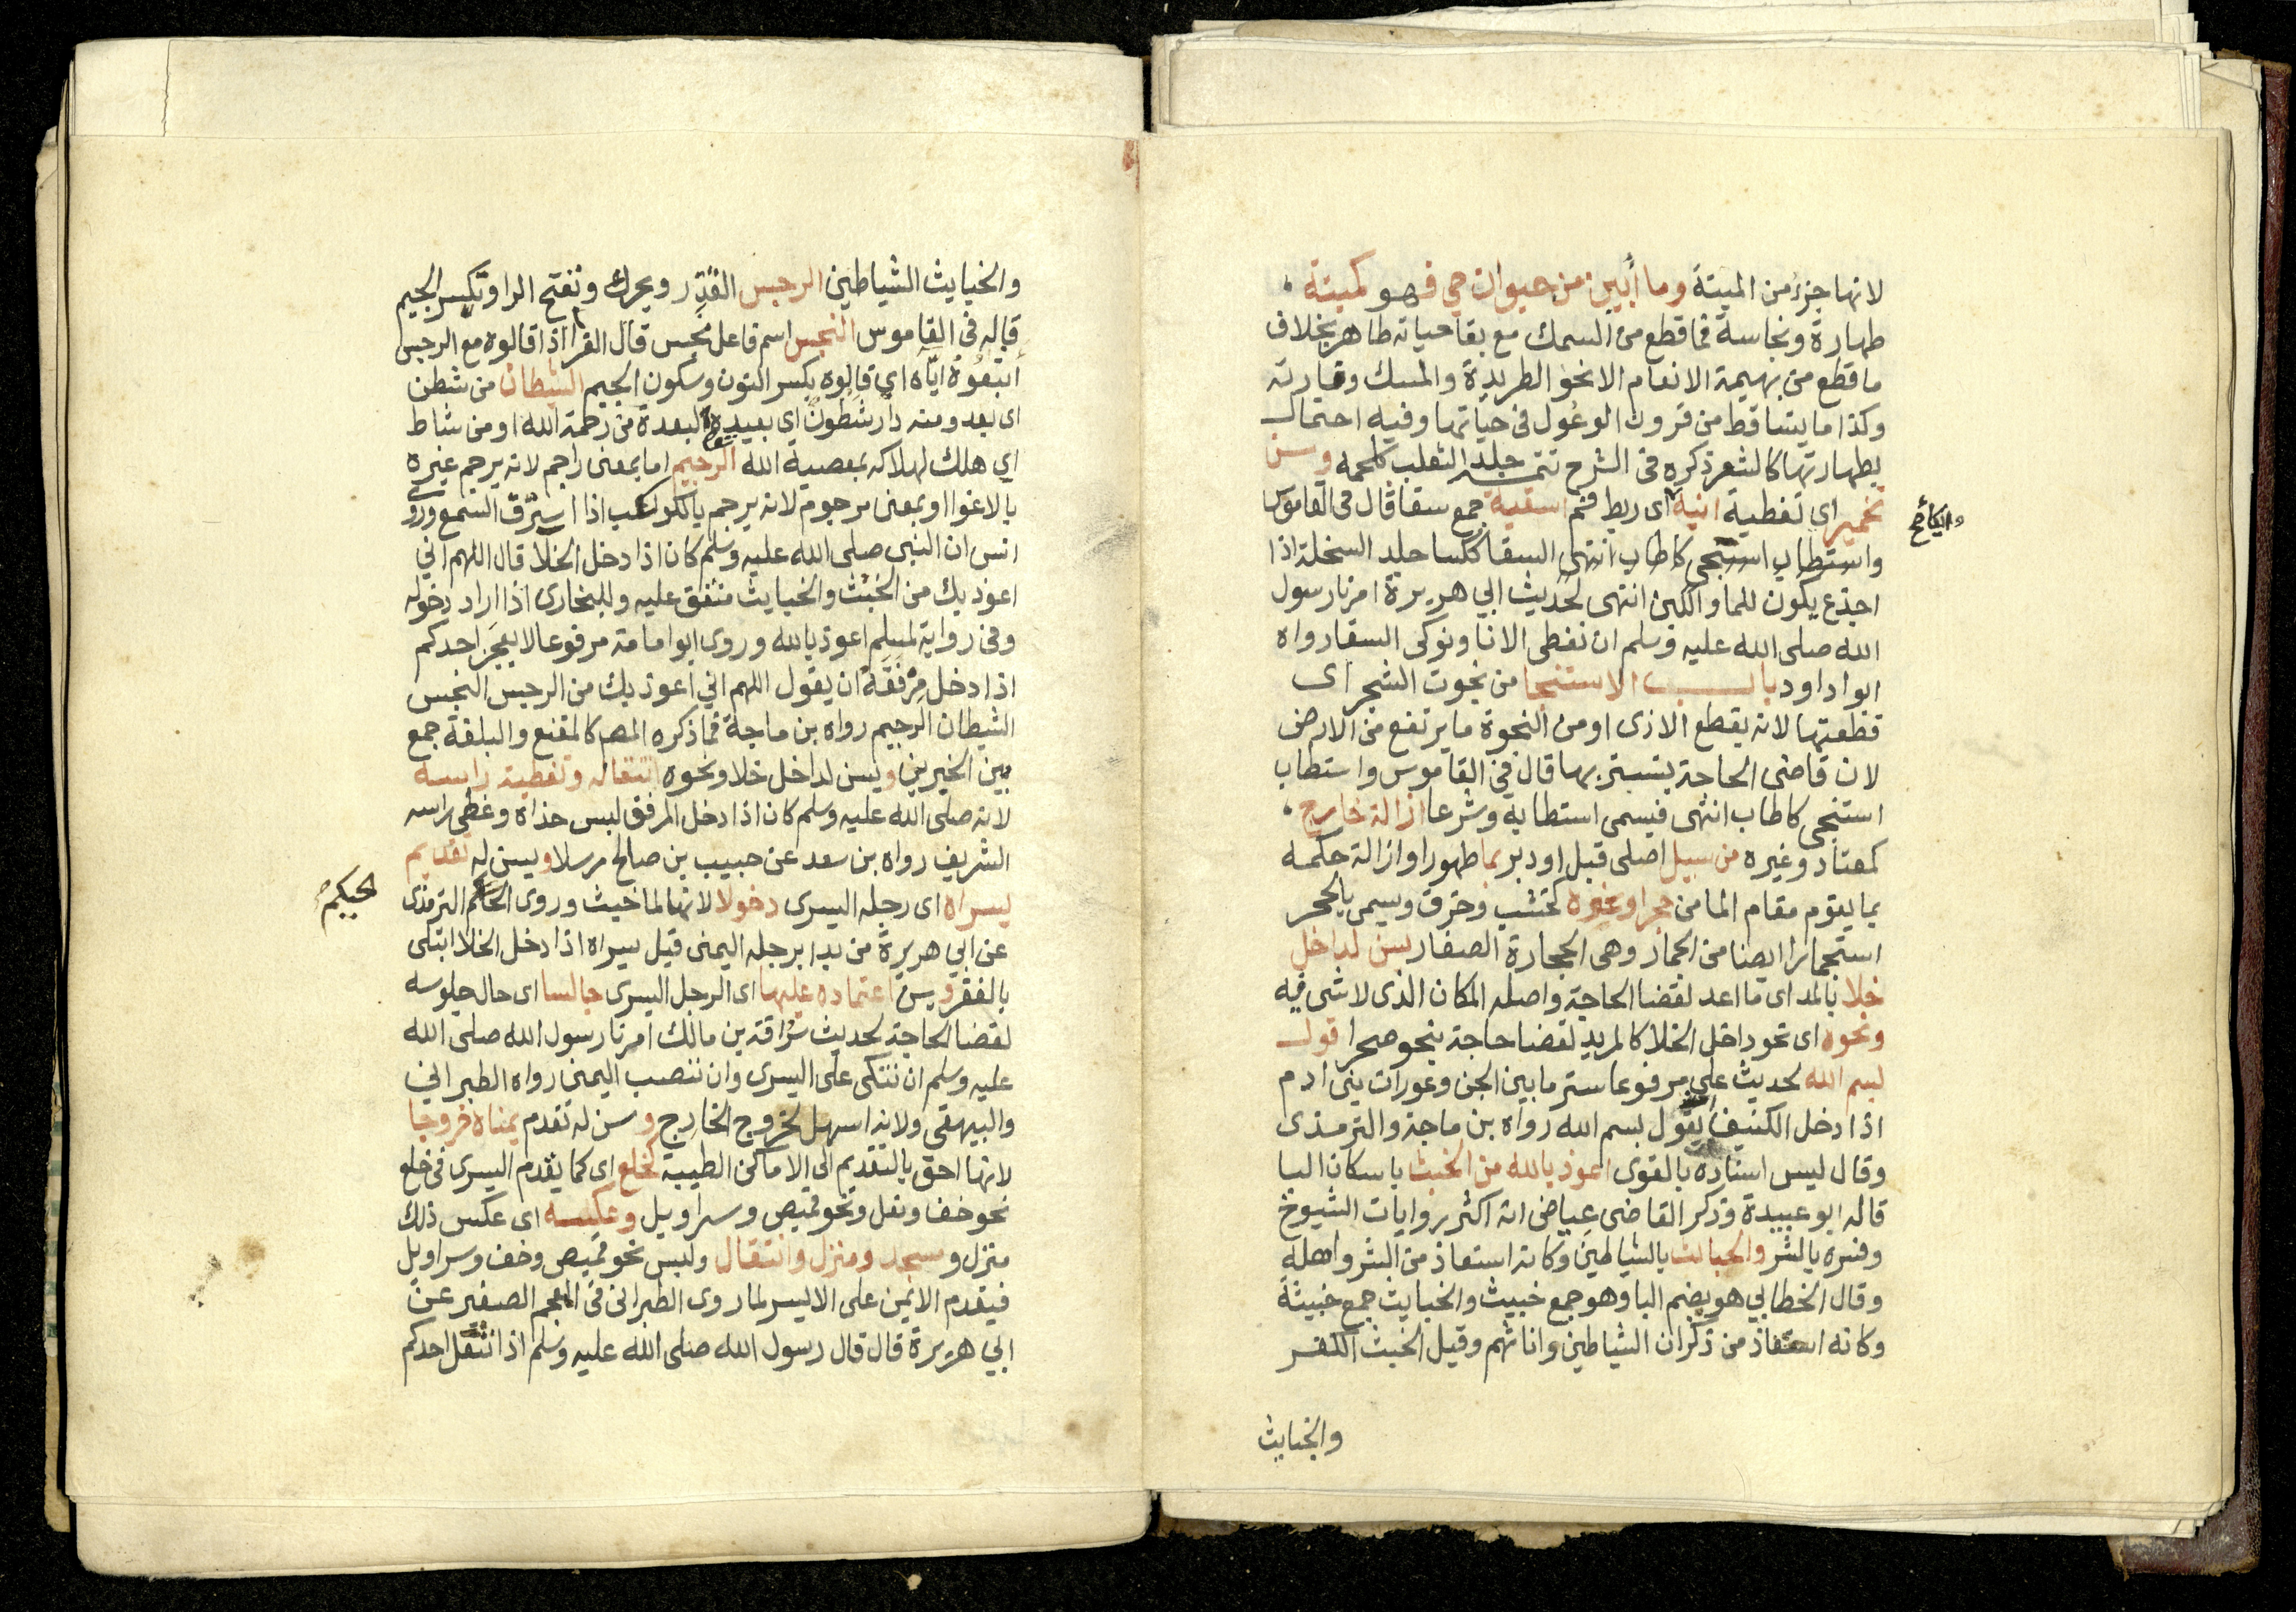 لانها جزء من الميتة وما أبين من حيوان حي فهو كميتة
طهارة ونجاسة فما قطع من السمك مع بقا حياته طاهر بخلاف
ما قطع من بهيمة الانعام الا نحو الطريدة والمسك وفارته
وكذا ما يتساقط من قرون الوعول في حياتها وفيه احتمال
بطهارتها كالشعر ذكره في الشرح تتمة جلد الثعلب كلحمه وسن
تخمير اي تغطية انية اى ربط فم اسقية جمع سقا قال في القاموس
وايكأ
واستطاب استنجى كاطاب انتهى السقا ككسا جلد السخلة اذا
اجذع يكون للما واللبن انتهى لحديث ابي هريرة امرنا رسول
الله صلى الله عليه وسلم ان نغطى الانا ونوكى السقا رواه
ابوا داود باب الاستنجا من نجوت الشجر اى
قطعتها لانه يقطع الاذى او من النجوة ما يرتفع من الارض
لان قاضى الحاجة يستتر بها قال في القاموس واستطاب
استنجى كاطاب انتهى فيسمى استطابه وشرعا ازالة خارج
كمعتاد وغيره من سبيل اصلى قبل او دبر بما طهور او ازالة حكمه
بما يقوم مقام الما من حجر او غيره كخشب وخرق ويسمى بالحجر
استجمارا ايضا من الجمار وهى الحجارة الصغار يسن لداخل
خلا بالمد اى ما اعد لقضا الحاجة واصله المكان الذى لا شى فيه
ونحوه اى نحو داخل الخلا كالمريد لقضا حاجة بنحو صحرا قول
بسم الله لحديث علي مرفوعا ستر ما بين الجن وعورات بنى ادم
اذا دخل الكنيف ان يقول بسم الله رواه بن ماجة والترمذى
وقال ليس اسناده بالقوى اعوذ بالله من الخبث باسكان البا
قاله ابو عبيدة وذكر القاضى عياض انه اكثر روايات الشيوخ
وفسره بالشر والخبائث بالشياطين وكانه استعاذ من الشر واهله
وقال الخطابي هو بضم البا وهو جمع خبيث والخبايث جمع خبيثة
وكانه استعاذ من ذكران الشياطين واناثهم وقيل الخبث الكفر
والخبايث
والخبايث الشياطين الرجس القذر ويحرك وتفتح الرا وتكسر الجيم
قاله في القاموس النجس اسم فاعل نجس قال الفرا اذا قالوه مع الرجس
أتبعوه اياه اي قالوه بكسر النون وسكون الجيم الشيطان من شطن
اى بعد ومنه دار شطون اى بعيدة لبعده من رحمة الله او من شاط
اي هلك لهلاكه بمعصية الله الرجيم اما بمعنى راجم لانه يرجم غيره
بالاغوا او بمعنى مرجوم لانه يرجم بالكواكب اذا استرق السمع وروى
انس ان النبى صلى الله عليه وسلم كان اذا دخل الخلا قال اللهم اني
اعوذ بك من الخبث والخبايث متفق عليه وللبخارى اذا اراد دخوله
وفي رواية لمسلم اعوذ بالله وروى ابوا مامة مرفوعا لا يعجز احدكم
اذا دخل مرفقه ان يقول اللهم اني اعوذ بك من الرجس النجس
الشيطان الرجيم رواه بن ماجة فما ذكره المص كالمقنع والبلغة جمع
بين الخبرين ويسن لداخل خلا ونحوه انتعاله وتغطية راسه
لانه صلى الله عليه وسلم كان اذا دخل المرفق لبس حذاه وغطى راسه
الشريف رواه بن سعد عن حبيب بن صالح مرسلا ويسن له تقديم
يسراه اى رجله اليسرى دخولا لانها لما خبث وروى الحاكم الترمذى
الحكيم
عن ابي هريرة من بدا برجله اليمنى قبل يسراه اذا دخل الخلا ابتلى
بالفقر ويسن اعتماده عليها اى الرجل اليسرى جالسا اى حال جلوسه
لقضا الحاجة لحديث سراقة بن مالك امرنا رسول الله صلى الله
عليه وسلم ان نتكى على اليسرى وان ننصب اليمنى رواه الطبراني
والبيهقى ولانه اسهل لخروج الخارج وسن له تقدم يمناه خروجا
لانها احق بالتقديم الى الاماكن الطيبة كخلع اى كما يقدم اليسرى في خلع
نحو خف ونعل ونحو قميص وسراويل وعكسه اى عكس ذلك
منزل ومسجد ومنزل وانتعال ولبس نحو قميص وخف وسراويل
فيقدم الايمن على الايسر لما روى الطبراني في المعجم الصغير عن
ابي هريرة قال قال رسول الله صلى الله عليه وسلم اذا انتعل احدكم